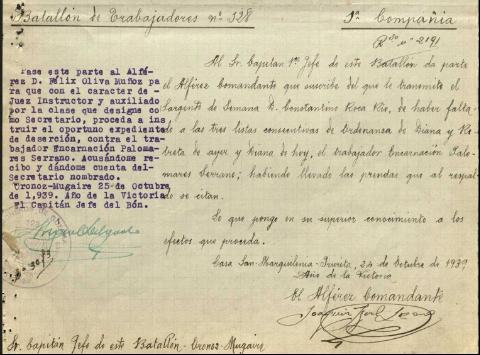 Batallón de Trabajadores nº 128
1ª Compañia
Rdo nº 2191
Pase este parte al Alfé-
rez D. Félix Oliva Muñoz pa
ra que con el caracter de
Juez Instructor y auxiliado
por la clase que designe co
mo Secretario, proceda a ins
truir el oportuno expediente
de deserción, contra el tra-
bajador Encarnación Palo-
mares Serrano; Acusándome re-
cibo y dándome cuenta del
Secretario nombrado.
Oronoz-Mugaire 25 de Octubre
de 1,939. Año de la Victoria
El Capitán Jefe del Bón.
Al Sr. Capitan 1er Jefe de este Batallón da parte
el Alférez Comandante que suscribe del que le transmite el
Sargento de Semana D. Constantino Roca Rio, de haber falta-
do a las tres listas consecutivas de Ordenanza de Diana y Re-
treta de ayer y Diana de hoy, el trabajador Encarnación Palo-
mares Serrano; habiendo llevado las prendas que al respal-
do se citan.
Lo que pongo en su superior conocimiento a los
efectos que proceda.
Casa San 24 de Octubre de 1939
Año de la Victoria
El Alférez Comandante
Joaquin
Sr. Capitán Jefe de este Batallón.- Oronoz-Mugaire